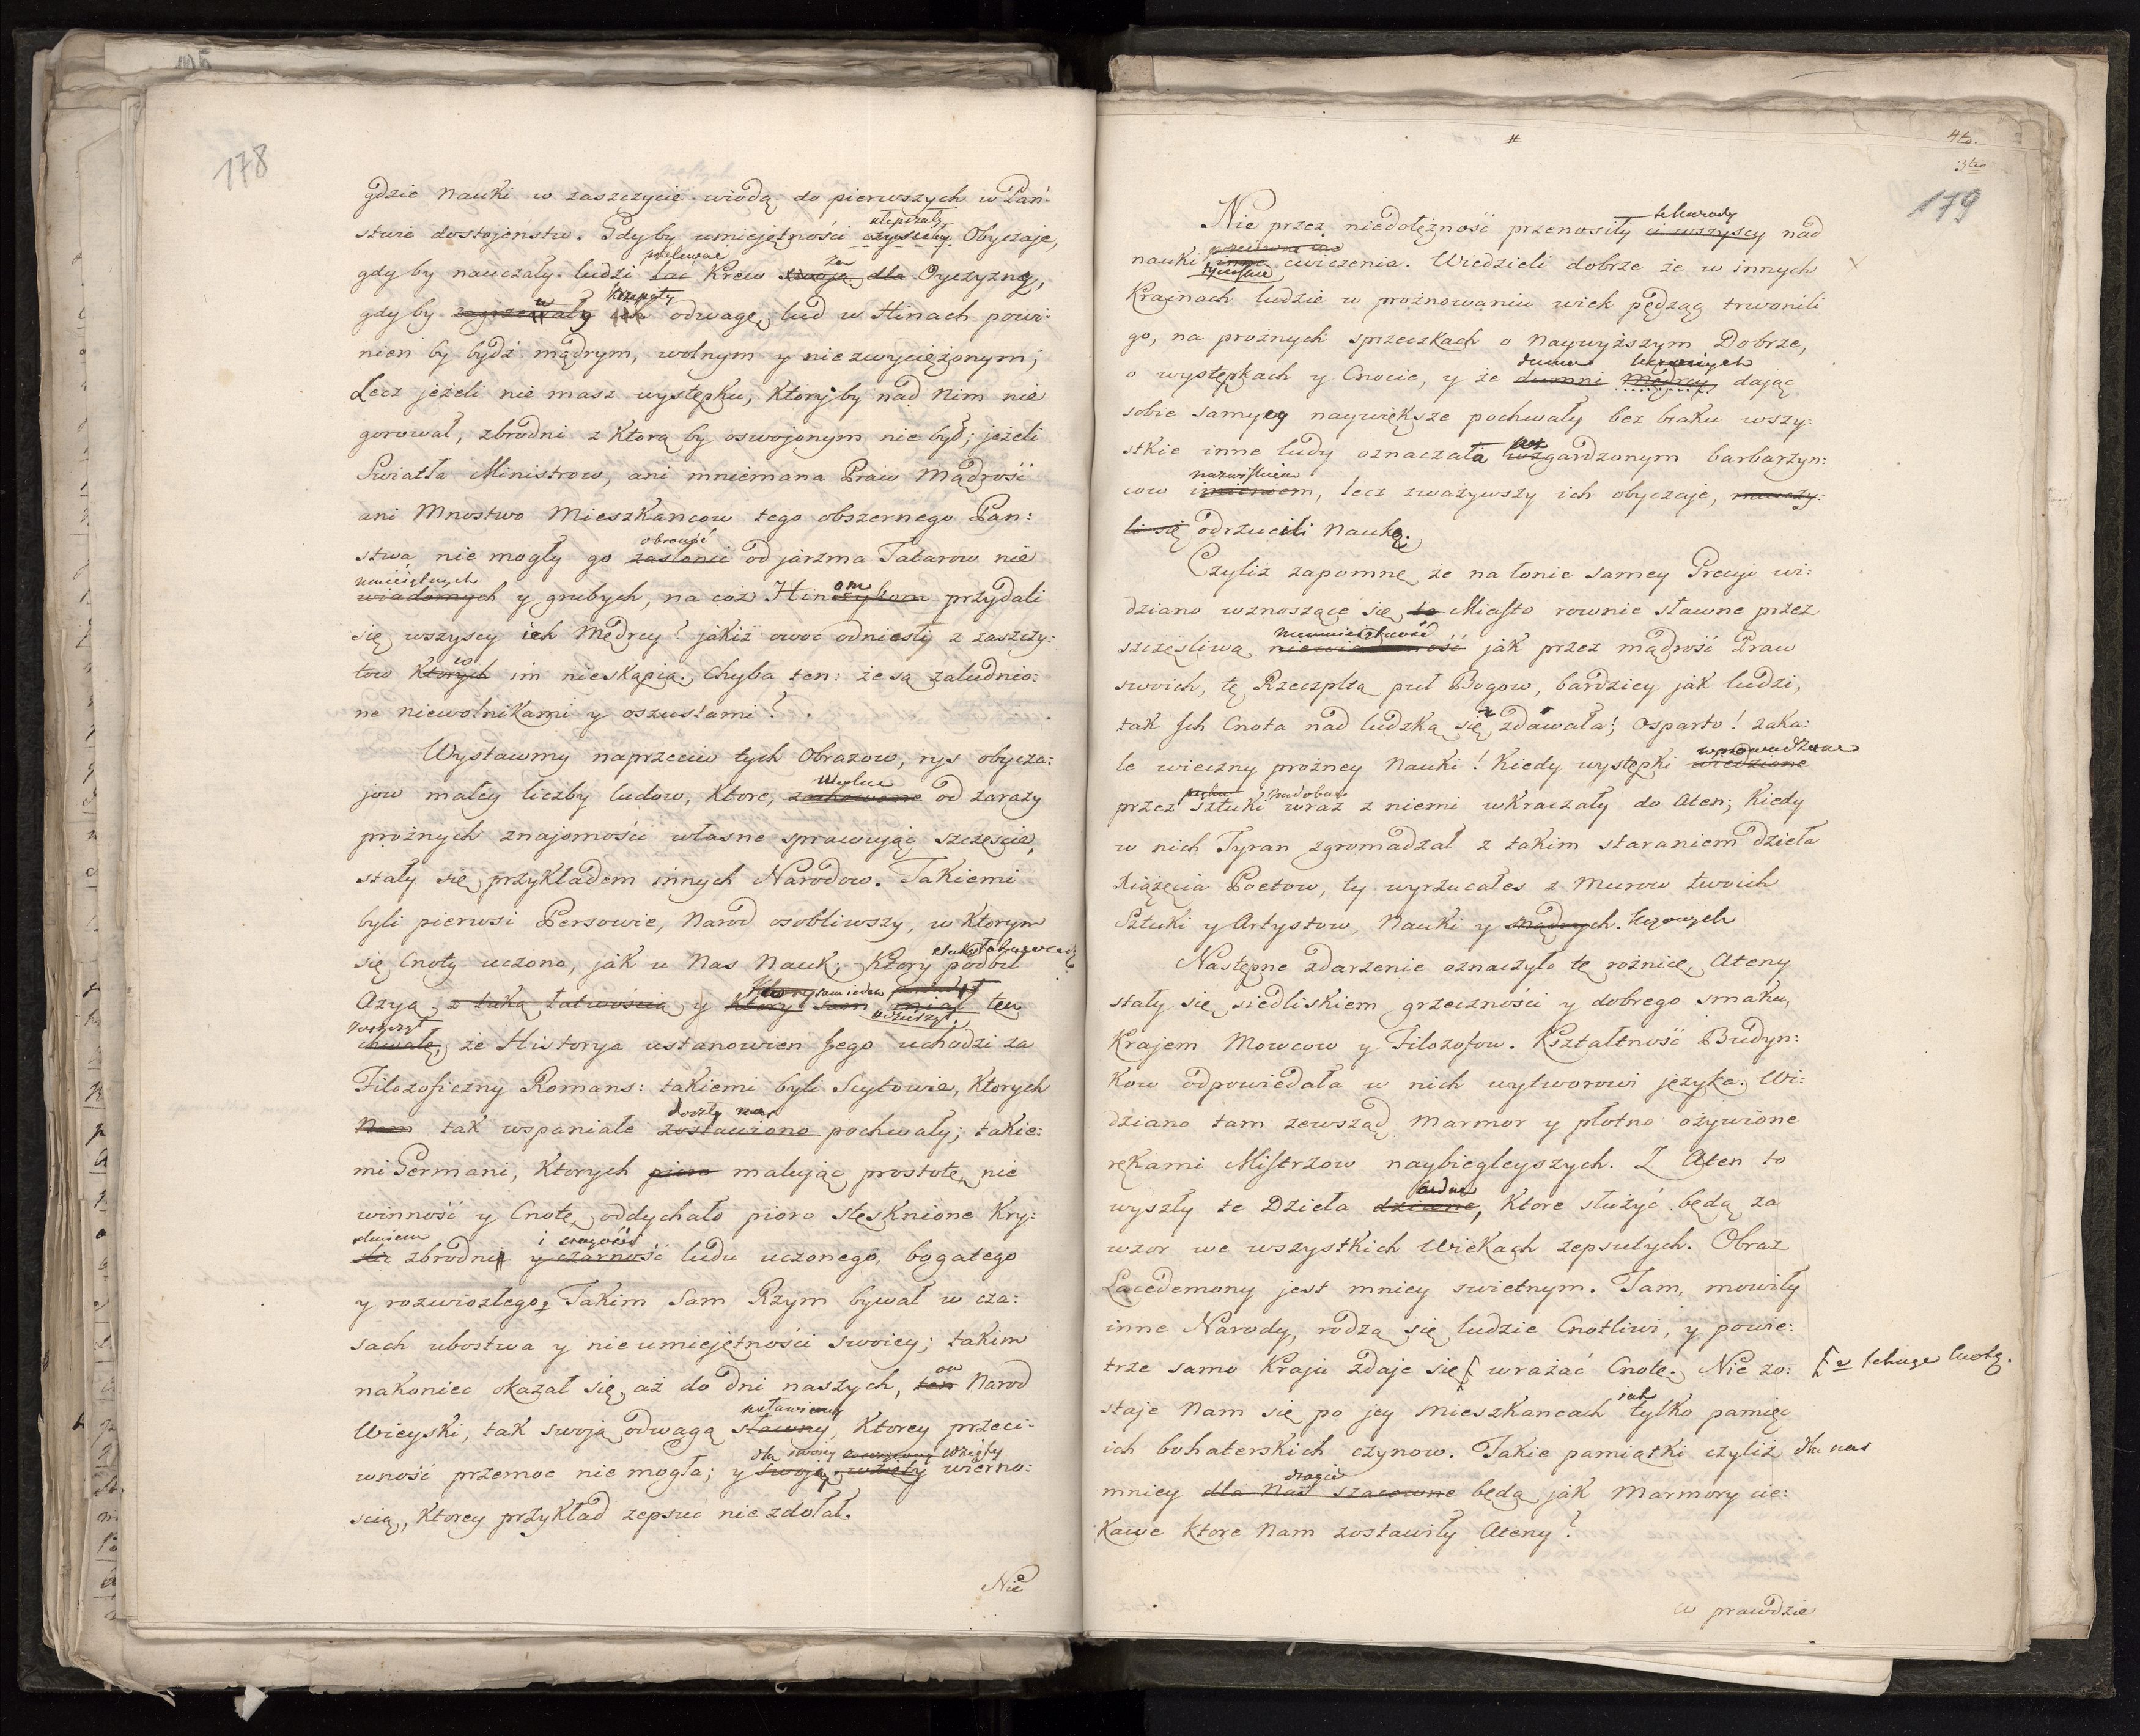 178
gdzie Nauki w zaszczycie wiodą do pierwszych w Pań:
stwie dostojeństw. Gdyby umiejętności czysciły Obyczaje,
gdy by nauczały ludzi przelewać lać Krew swoją dla za Oyczyznę,
gdy by zagrzewały ich krzepiły odwagę, lud w Hinach powi:
nien by bydź mądrym, wolnym y niezwyciężonym;
Lecz jeżeli nie masz występku, ktory by nad Nim nie
gorował, zbrodni z ktorą by oswojonym nie był; jeżeli
Swiatła Ministrow, ani mniemana Praw Mądrość
ani Mnostwo Mieszkancow tego obszernego Pan:
stwa, nie mogły go obronić zasłonić od jarzma Tatarow nie
umieiętnych wiadomych y grubych, na coż Hinczykom om przydali
się wszyscy ich Mędrcy? jakiż owoc odniesły z zaszczy:
tow ktorych co im nieskąpią. Chyba ten: że są zaludnio:
ne niewolnikami y oszustami?
Wystawmy naprzeciw tych Obrazow, rys obycza:
jow małey liczby ludow, ktore, wolne zachowane od zarazy
prożnych znajomości własne sprawując szczęście,
stały się przykładem innych Narodow. Takiemi
byli pierwsi Persowie, Narod osobliwszy, w ktorym
się Cnoty uczono, jak u Nas Nauk; Ktory podbił
Azyą z taką łatwością y ktory sam miał tę
zaszczyt chwałę, że Historya ustanowien Jego uchodzi za
Filozoficzny Romans: takiemi byli Scytowie, ktorych
Nam tak wspaniałe doszły nas zostawiono pochwały; takie:
mi Germani, Ktorych pioro malując prostotę, nie
winność y Cnotę, oddychało pioro stęsknione Kry:
sleniem slić zbrodni i czarność y czarność ludu uczonego, bogatego
y rozwiozłego; Takim Sam Rzym bywał w cza:
sach ubostwa y nieumiejętności swoiey; takim
nakoniec okazał się, aż do dni naszych, ten on Narod
Wieyski, tak swoją odwagą wsławiony sławny, Ktorey przeci:
wność przemoc nie mogła; y dla swoiey wzięty swoją wzięty wierno:
scią, ktorey przykład zepsuć nie zdołał.
Nie
4to.
3tio
179
Nie przez niedołężność przenosiły te Narody ci wszyscy nad
nauki inne cwiczenia. Wiedzieli dobrze że w innych
Krajnach ludzie w prożnowaniu wiek pędząc trwonili
go, na prożnych sprzeczkach o Naywyższym Dobrze,
o występkach y Cnocie, y że duma Uczonych dumni Mędrcy, dając
sobie samym naywiększe pochwały bez braku wszy:
stkie inne ludy oznaczała wzgardzonym barbarzyn:
cow nazwiskiem imieniem, lecz zważywszy ich obyczaje, nauczy:
li się odrzucili Naukę.
Czyliż zapomnę że na łonie samey Grecyi wi:
dziano wznoszące się to Miasto rownie sławne przez
szczęśliwą nieumieiętność niewiadomość jak przez mądrość Praw
swoich, tę Rzeczpltą puł Bogow, bardziey jak ludzi,
tak Ich Cnota nad ludzką się zdawała; O Sparto! zaka:
le wieczny prożney Nauki! Kiedy występki wprowadzone wiedzione
przez Sztuki wraz z niemi wkraczały do Aten; Kiedy
w nich Tyran zgromadzał z takim staraniem dzieła
Xiążęcia Poetow, ty wyrzucałes z Murow twoich
Sztuki y Artystow, Nauki y mądrych. Uczonych
Następne zdarzenie oznaczyło tę rożnicę, Ateny
stały się siedliskiem grzeczności y dobrego smaku,
Krajem Mowcow y Filozofow. Kształtność Budyn:
kow odpowiedała w nich wytworowi języka. Wi:
dziano tam zewsząd Marmor y płotno ożywione
rękami Mistrzow naybiegleyszych. Z Aten to
wyszły te Dzieła cudne dziwne, ktore służyć będą za
wzor we wszystkich Wiekach zepsutych. Obraz
Lacedemony jest mniey swietnym. Tam, mowiły
inne Narody, rodzą się ludzie Cnotliwi, y powie:
trze samo Kraju zdaje się wrażać Cnotę. Nie zo: tchnąć Cnotę.
staje Nam się po jey Mieszkancach jak tylko pamięć
ich bohaterskich czynow. Takie pamiątki czyliż dla nas
mniey drogie dla Nas szacowne będą jak Marmory cie:
kawe ktore Nam zostawiły Ateny?
w prawdzie